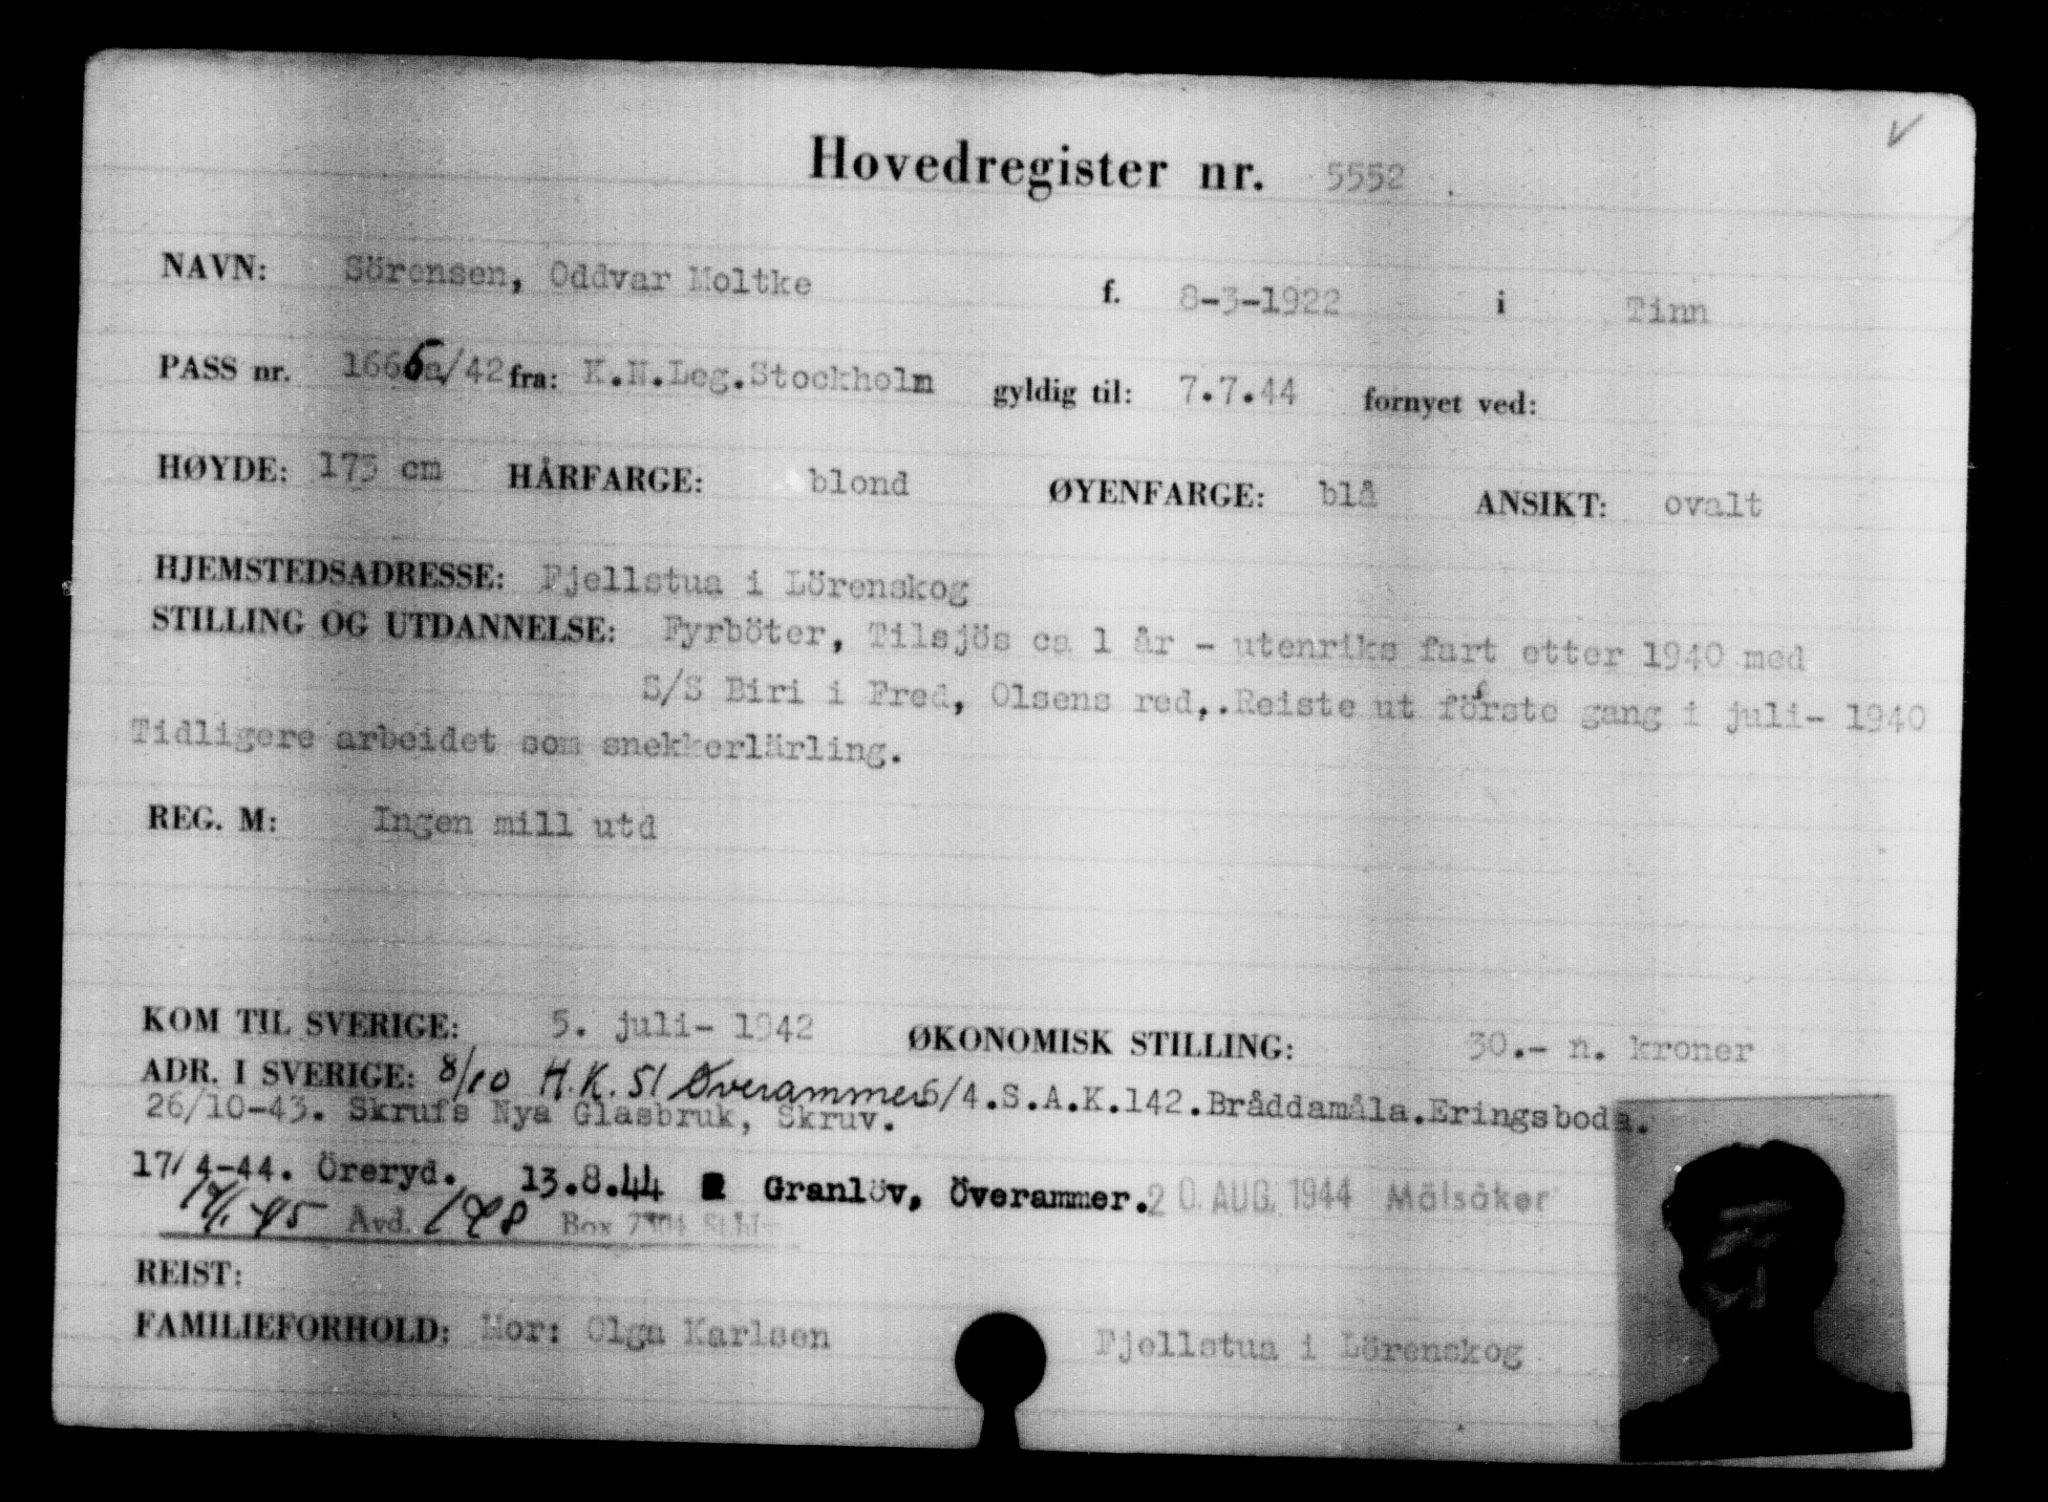 Hovedregister nr. 5552
NAVN: Sörensen, Oddvar Moltke f. 8-3-1922 i Tinn
PASS nr. 1665a/42 fra: K.N.Leg.Stockholm gyldig til: 7.7.44 fornyet ved:
HØYDE: 173 cm HÅRFARGE: blond ØYENFARGE: blå ANSIKT: ovalt
HJEMSTEDSADRESSE: Fjellstua i Lörenskog
STILLING OG UTDANNELSE: Fyrböter, Tilsjös ca 1 år - utenriks fart etter 1940 med
S/S Biri i Fred, Olsens red,.Reiste ut förste gang i juli- 1940
Tidligere arbeidet som snekkerlärling.
REG. M: Ingen mill utd
KOM TIL SVERIGE: 5. juli- 1942 ØKONOMISK STILLING: 30.- n. kroner
ADR. I SVERIGE: 8/10 H.K. 51 Överammer 6/4.S.A.K.142.Bråddamåla.Eringsboda.
26/10-43. Skrufs Nya Glasbruk, Skruv.
17/4-44. Öreryd. 13.8.44 Granlöv, Överammer. 20. AUG. 1944 Mälsåker
45 Avd. 148 Box
REIST:
FAMILIEFORHOLD: Mor: Olga Karlsen Fjellstua i Lörenskog